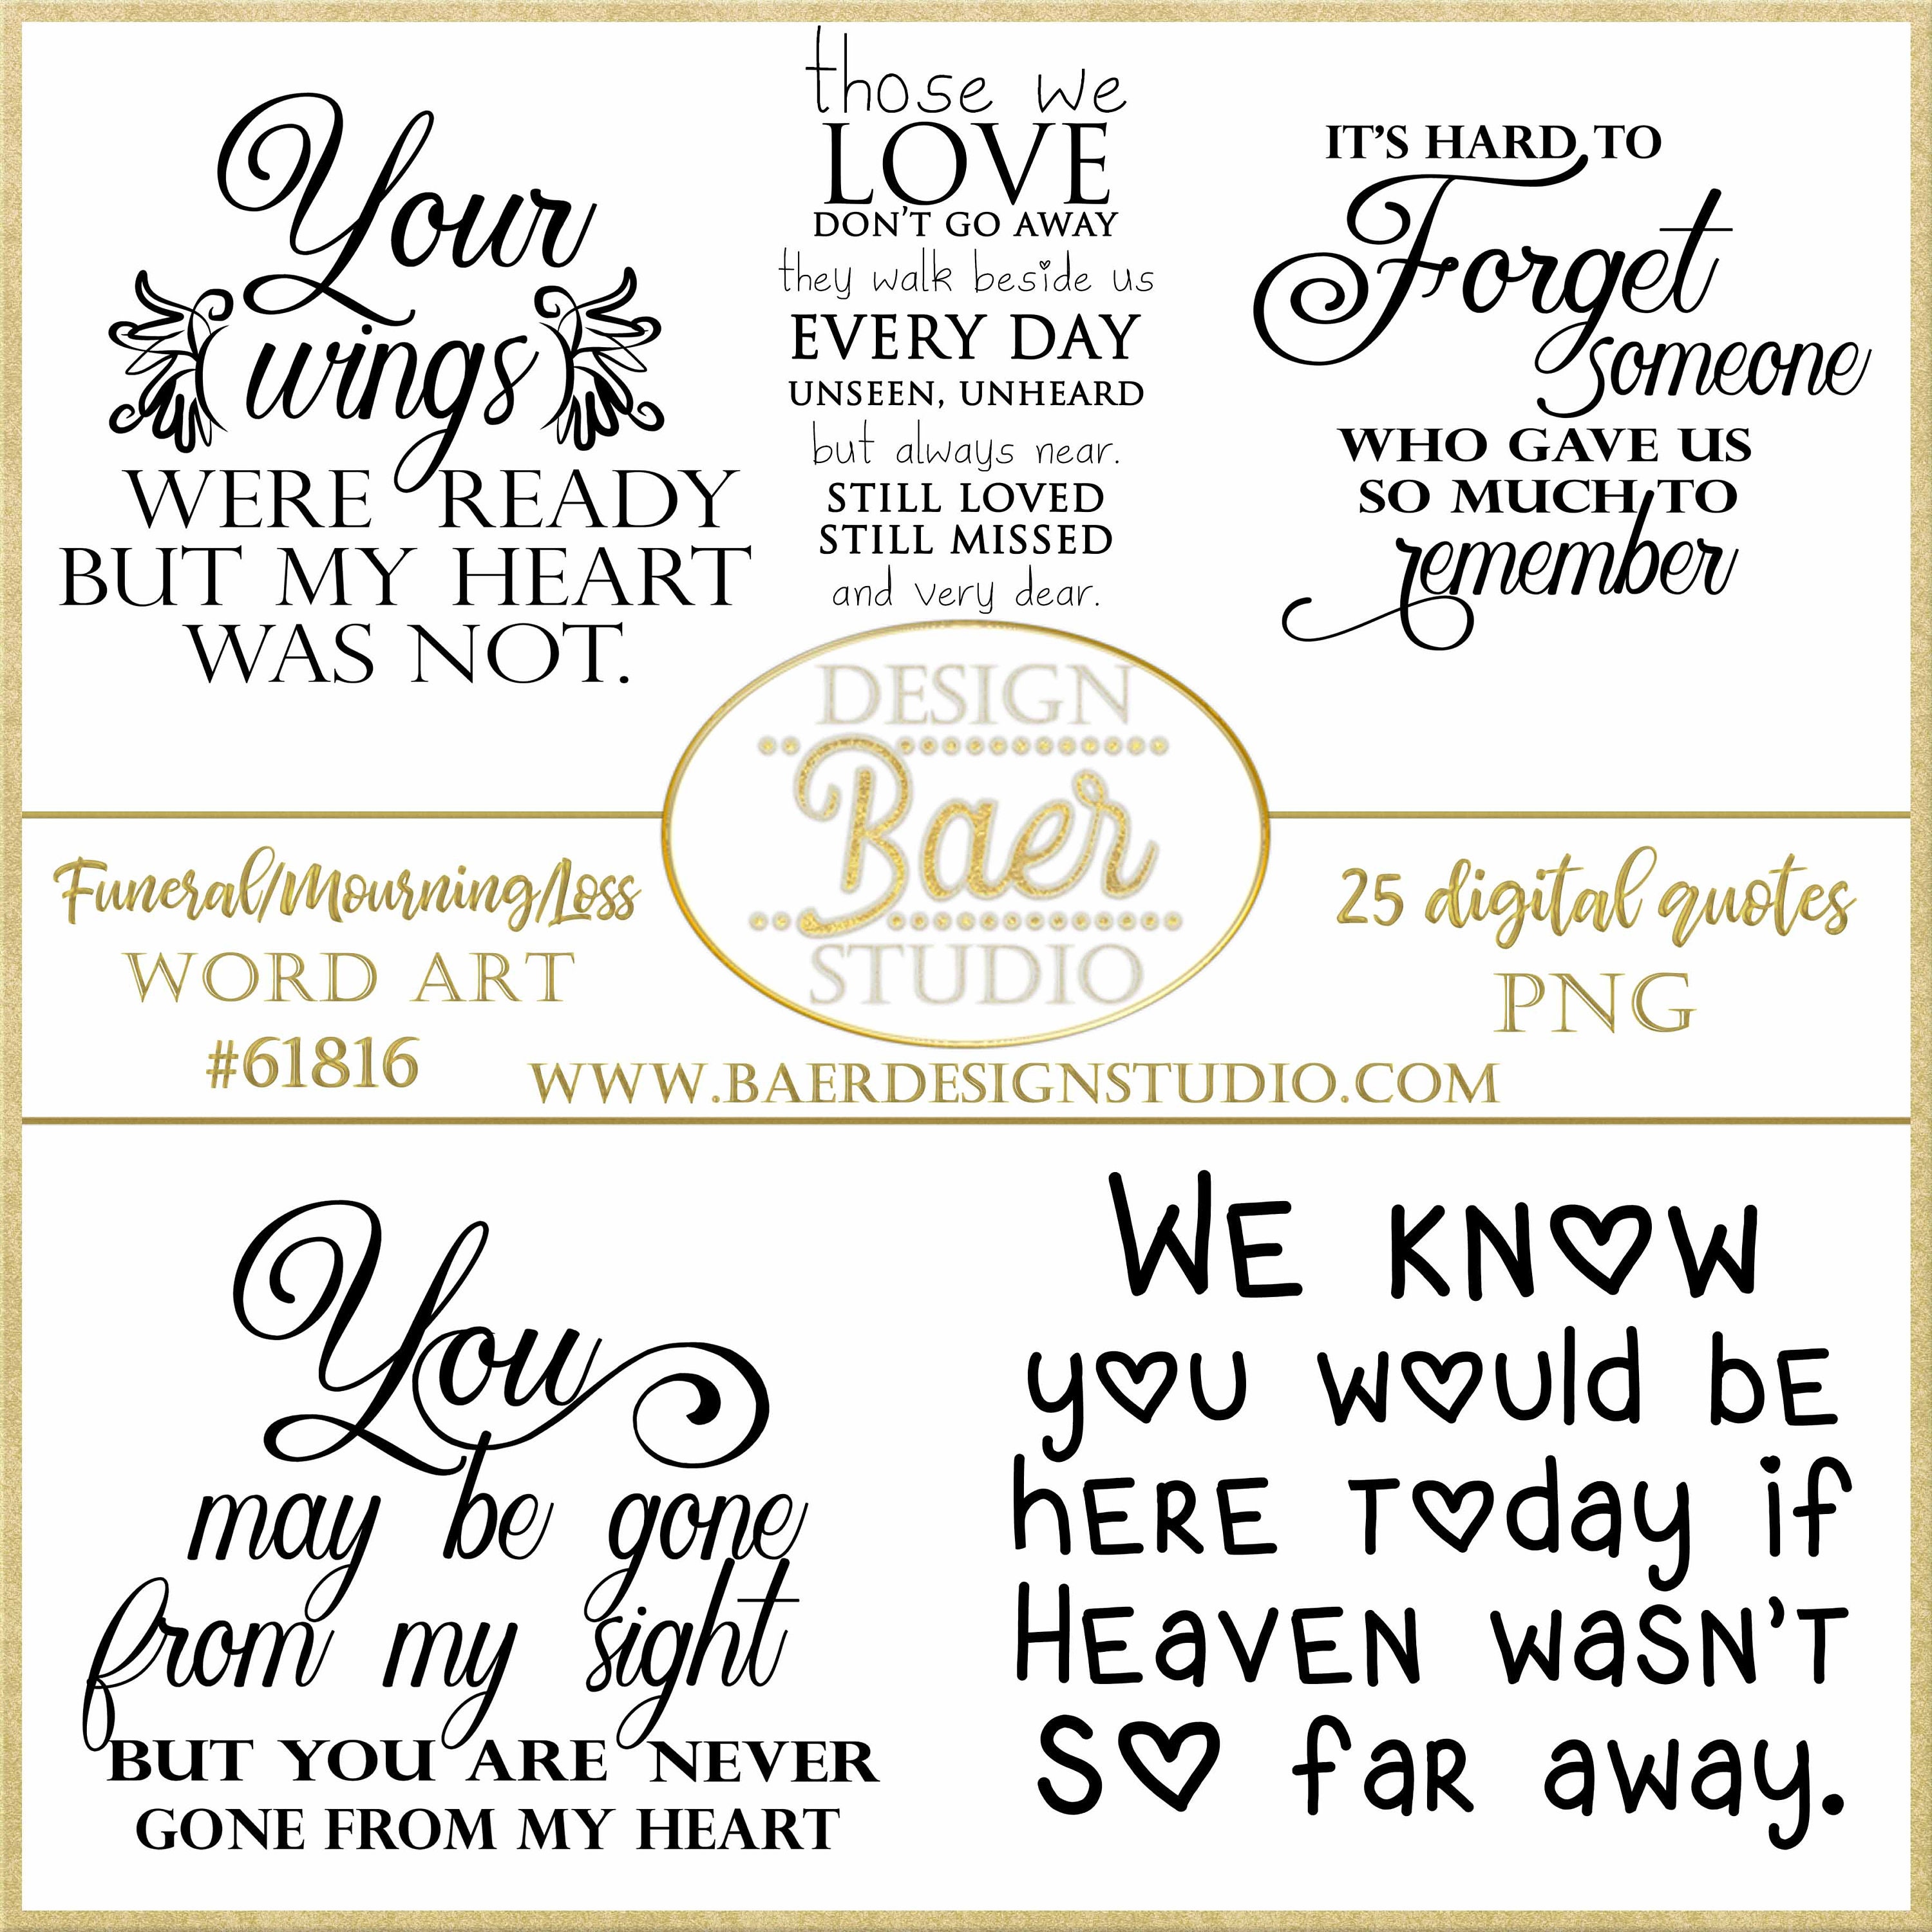 Your
wings
WERE READY
BUT MY HEART
WAS NOT.
those we
LOVE
DON'T GO AWAY
they walk beside us
EVERY DAY
UNSEEN, UNHEARD
but always near.
STILL LOVED
STILL MISSED
and very dear.
IT'S HARD TO
Forget
someone
WHO GAVE US
SO MUCH TO
remember
DESIGN
Baer
STUDIO
Funeral/Mourning/Loss
WORD ART
#61816
25 digital quotes
PNG
WWW.BAERDESIGNSTUDIO.COM
You
may be gone
from my sight
BUT YOU ARE NEVER
GONE FROM MY HEART
WE KNOW
you would bE
hERE Today if
HEaVEN waSN'T
So faR away.